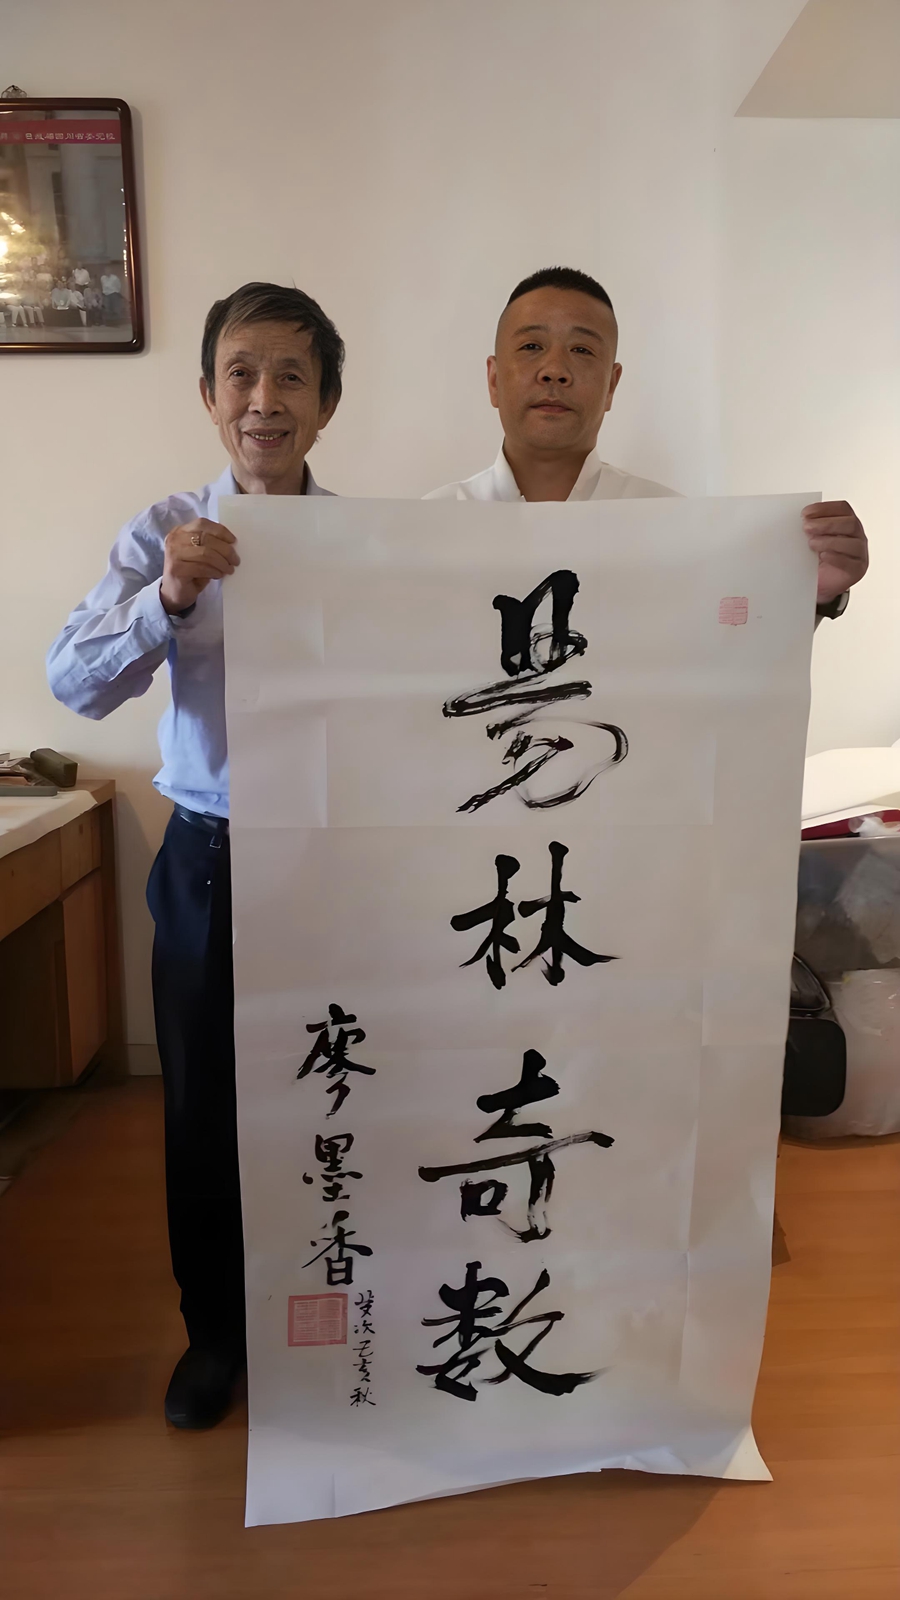 四川省委党校
易林奇数
歲次己亥秋
廖墨香